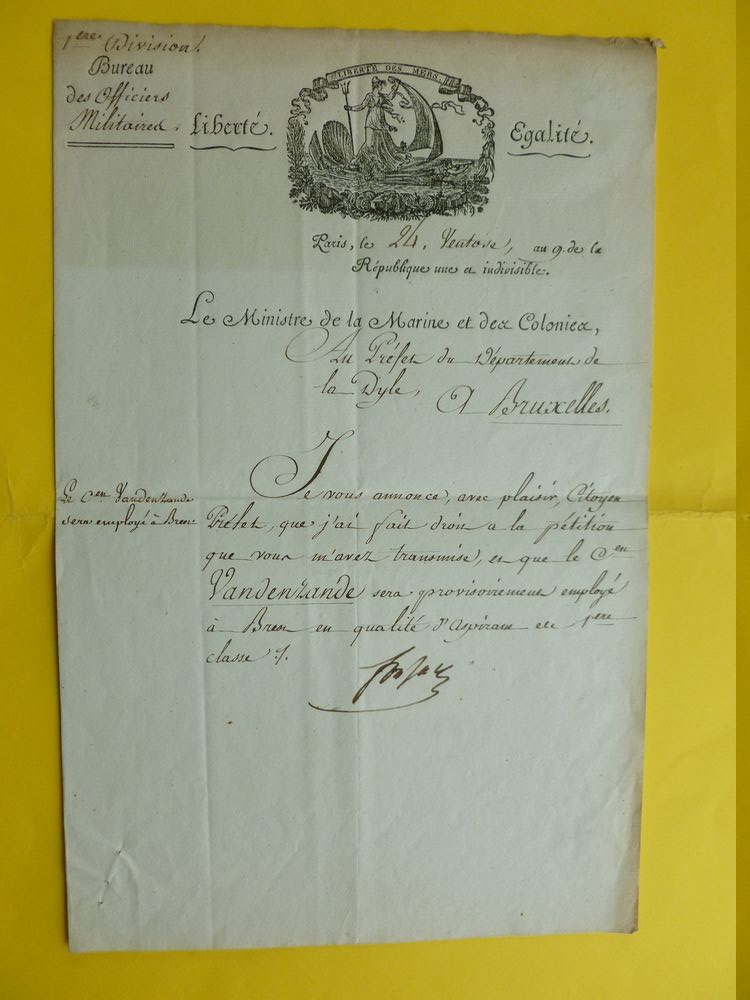 1ere Division.
Bureau
des Officiers
Militaires.
Liberté.
LIBERTÉ DES MERS.
Egalité.
Paris, le 24. Ventose, au 9. de la
République une et indivisible.
Le Ministre de la Marine et des Colonies,
Au Préfet du Département de
la Dyle,
A Bruxelles.
Le Cen Vandenzande
sera employé à Brest
Je vous annonce, avec plaisir, Citoyen
Préfet, que j'ai fait droit a la pétition
que vous m'avez transmise, et que le Cen
Vandenzande sera provisoirement employé
à Brest en qualité d'Aspirant de 1ere
classe.